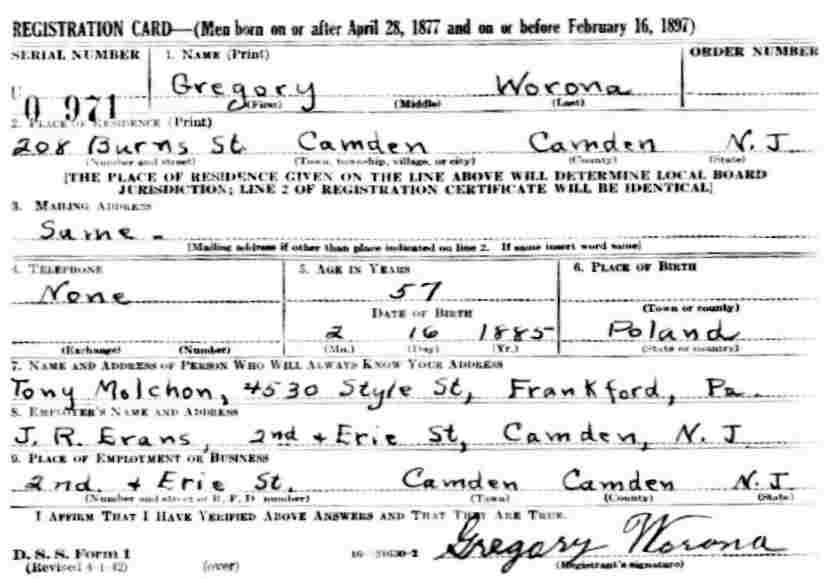 REGISTRATION CARD—(Men born on or after April 28, 1877 and on or before February 16, 1897)
SERIAL NUMBER 1. NAME (Print) ORDER NUMBER
U 0 971 Gregory Worona
(First) (Middle) (Last)
2. PLACE OF RESIDENCE (Print)
208 Burns St. Camden Camden N. J
(Number and street) (Town, township, village, or city) (County) (State)
[THE PLACE OF RESIDENCE GIVEN ON THE LINE ABOVE WILL DETERMINE LOCAL BOARD
JURISDICTION; LINE 2 OF REGISTRATION CERTIFICATE WILL BE IDENTICAL]
3. MAILING ADDRESS
Same -
[Mailing address if other than place indicated on line 2. If same insert word same]
4. TELEPHONE 5. AGE IN YEARS 6. PLACE OF BIRTH
None 57
DATE OF BIRTH (Town or county)
2 16 1885 Poland
(Exchange) (Number) (Mo.) (Day) (Yr.) (State or country)
7. NAME AND ADDRESS OF PERSON WHO WILL ALWAYS KNOW YOUR ADDRESS
Tony Molchon, 4530 Style St, Frankford, Pa.
8. EMPLOYER'S NAME AND ADDRESS
J. R. Evans, 2nd + Erie St, Camden, N. J
9. PLACE OF EMPLOYMENT OR BUSINESS
2nd. + Erie St. Camden Camden N. J
(Number and street or R. F. D. number) (Town) (County) (State)
I AFFIRM THAT I HAVE VERIFIED ABOVE ANSWERS AND THAT THEY ARE TRUE.
D. S. S. Form 1 Gregory Worona
(Revised 4-1-42) (over) (Registrant's signature)